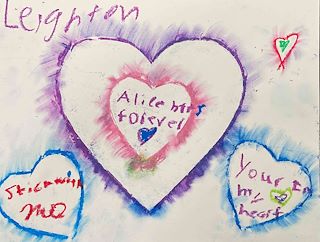 Leighton
Alice
forever
Stick with
me
Your in
my
heart